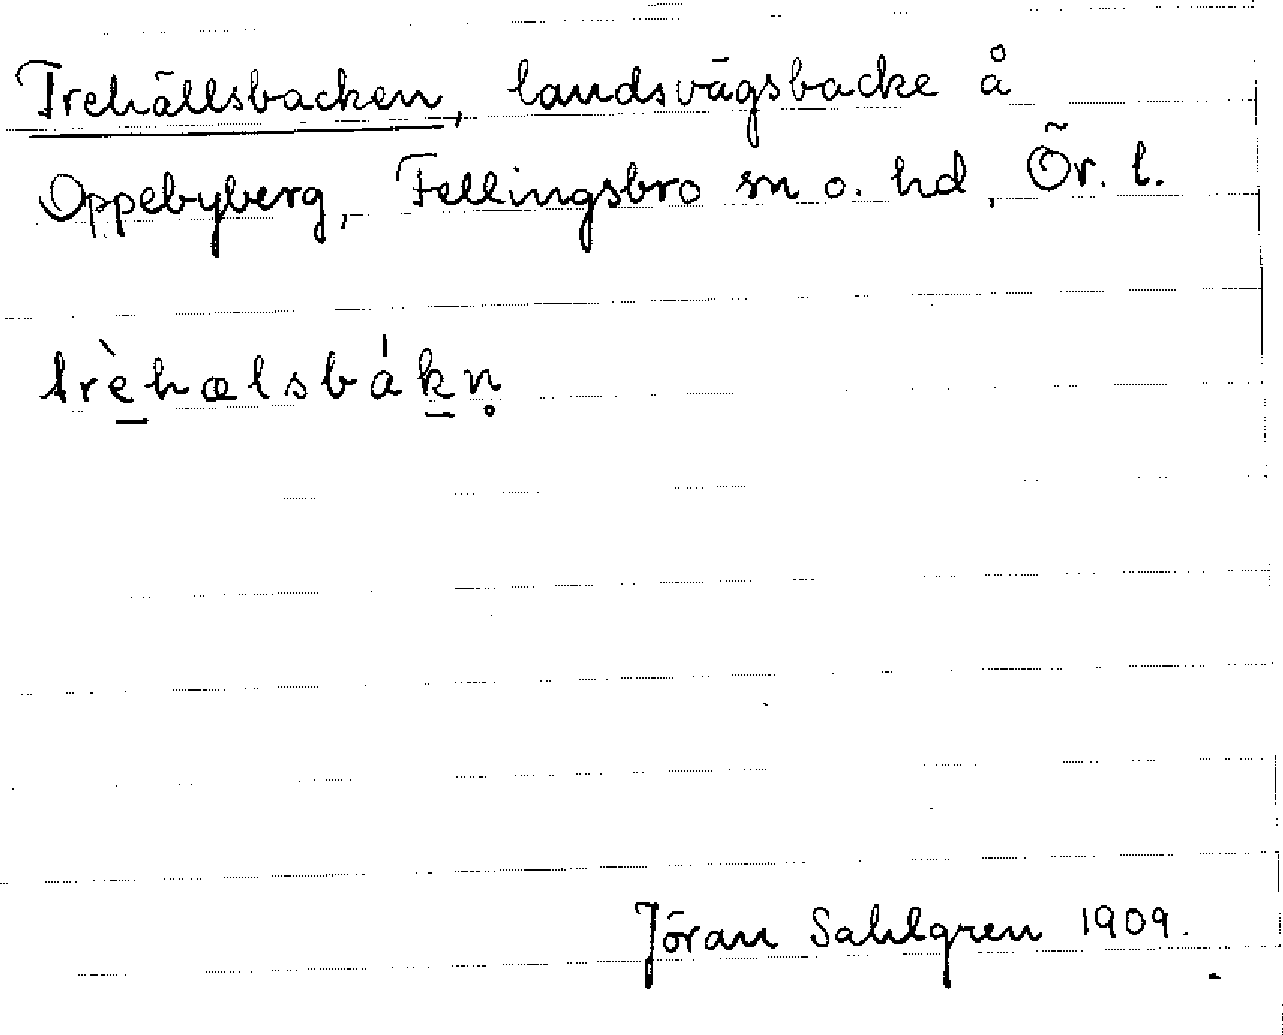 Trehällsbacken, landsvägsbacke å
Oppebyberg, Fellingsbro sn o. hd, Ör. l.
trè̱hælsbáḵn̥
Jöran Sahlgren 1909.